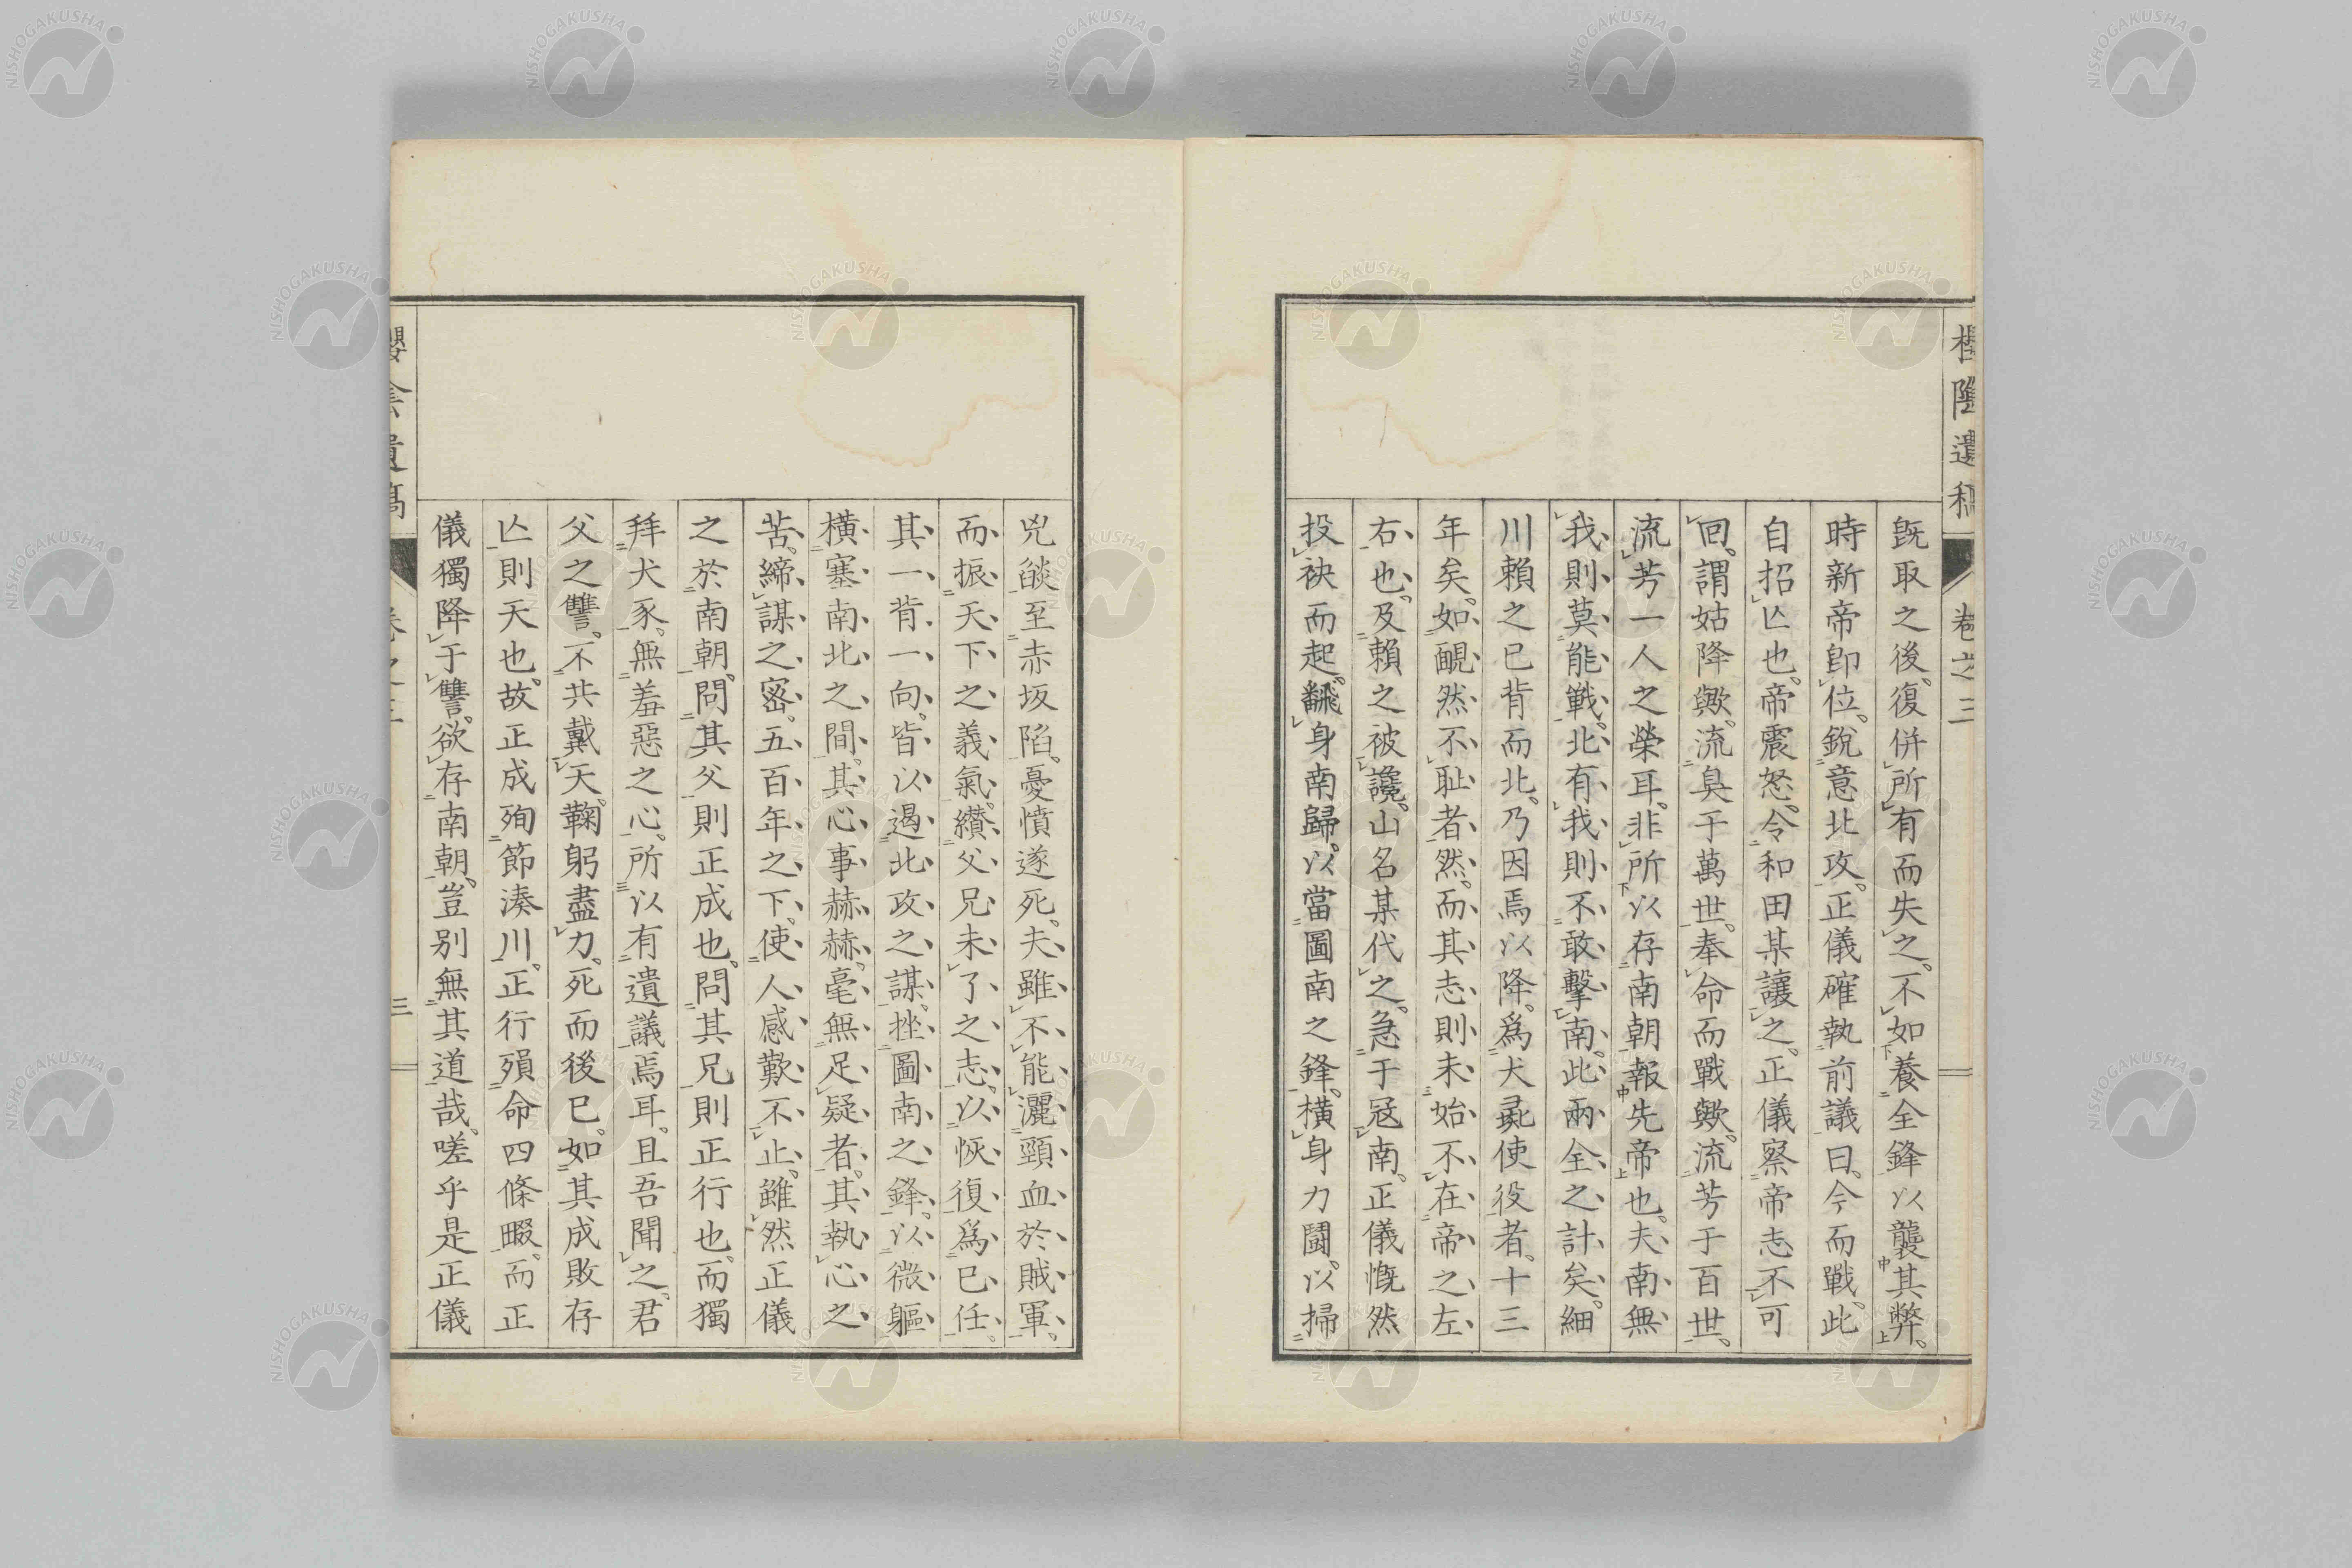 櫻陰遺稿
卷之三
既取之後。復併所有而失之。不如養全鋒以襲其弊。
時新帝卽位。銳意北攻。正儀確執前議曰。今而戰。此
自招亾也。帝震怒。令和田某讓之。正儀察帝志不可
回。謂姑降歟。流臭于萬世。奉命而戰歟。流芳于百世。
流芳一人之榮耳。非所以存南朝報先帝也。夫南無
我則莫能戰。北有我則不敢擊南。此兩全之計矣。細
川賴之已背而北。乃因焉以降。爲犬彘使役者。十三
年矣。如靦然不耻者然。而其志則未始不在帝之左
右也。及賴之被讒。山名某代之。急于冦南。正儀慨然
投袂而起。飜身南歸。以當圖南之鋒。橫身力鬪。以掃
兇燄。至赤坂陷。憂憤遂死。夫雖不能灑頸血於賊軍。
而振天下之義氣。纉父兄未了之志。以恢復爲已任。
其一背一向。皆以遏北攻之謀。挫圖南之鋒。以微軀
橫塞南北之間。其心事赫赫。毫無足疑者。其執心之
苦。締謀之密。五百年之下。使人感歎不止。雖然正儀
之於南朝。問其父則正成也。問其兄則正行也。而獨
拜犬豕。無羞惡之心。所以有遺議焉耳。且吾聞之。君
父之讐。不共戴天。鞠躬盡力。死而後已。如其成敗存
亾則天也。故正成殉節湊川。正行殞命四條畷。而正
儀獨降于讐。欲存南朝。豈別無其道哉。嗟乎是正儀
櫻陰遺稿
卷之三
三
NISHOGAKUSHA